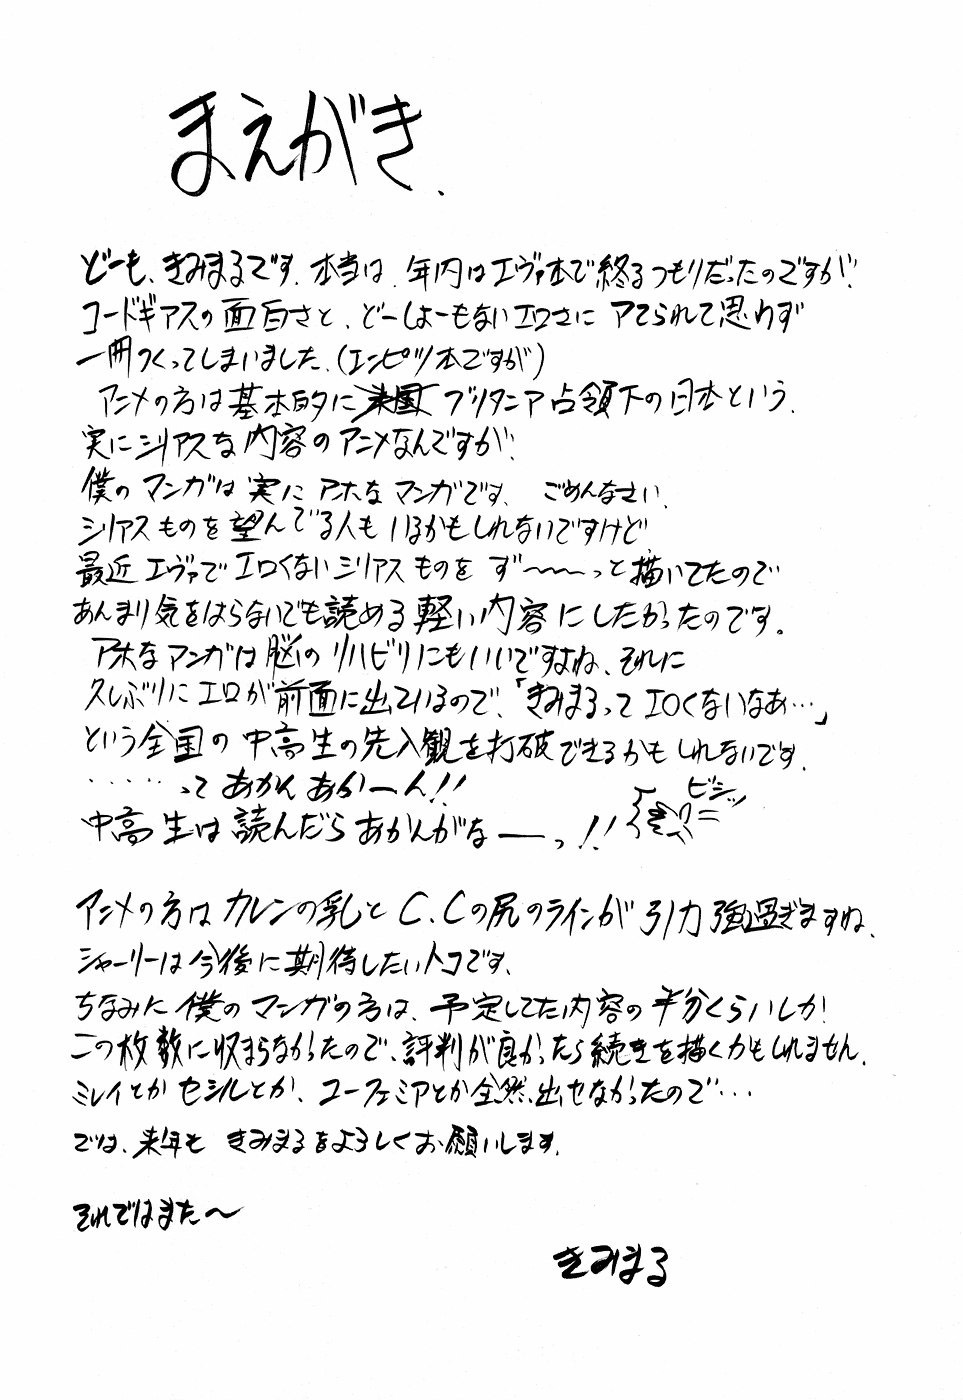 まえがき.
どーも、きみまるです。本当は、年内はエヴァ本で終るつもりだったのですが、
コードギアスの面白さと、どーしょーもないエロさに アてられて思わず
一冊つくってしまいました。(エンピツ本ですが)
アニメの方は基本的に米国ブリタニア占領下の日本という、
実にシリアスな内容のアニメなんですが、
僕のマンガは実にアホなマンガです、ごめんなさい、
シリアスものを望んでる人もいるかもしれないですけど
最近エヴァでエロくないシリアスものを ず〜〜〜っと描いてたので
あんまり気をはらないでも読める軽い内容にしたかったのです。
アホなマンガは脳のリハビリにもいいですよね、それに
久しぶりにエロが前面に出ているので、「きみまるってエロくないなあ…」
という全国の中高生の先入観を打破できるかもしれないです、
‥‥‥ってあかんあかーん!!
中高生は読んだらあかんがなーっ!!
ビシッ
アニメの方はカレンの乳とC.Cの尻のラインが引力強過ぎますね、
シャーリーは今後に期待したいトコです、
ちなみに僕のマンガの方は、予定してた内容の半分くらいしか
この枚数に収まらなかったので、評判が良かったら続きを描くかもしれません、
ミレイとかセシルとか、ユーフェミアとか全然出せなかったので…
では、来年もきみまるをよろしくお願いします。
それではまた〜
きみまる